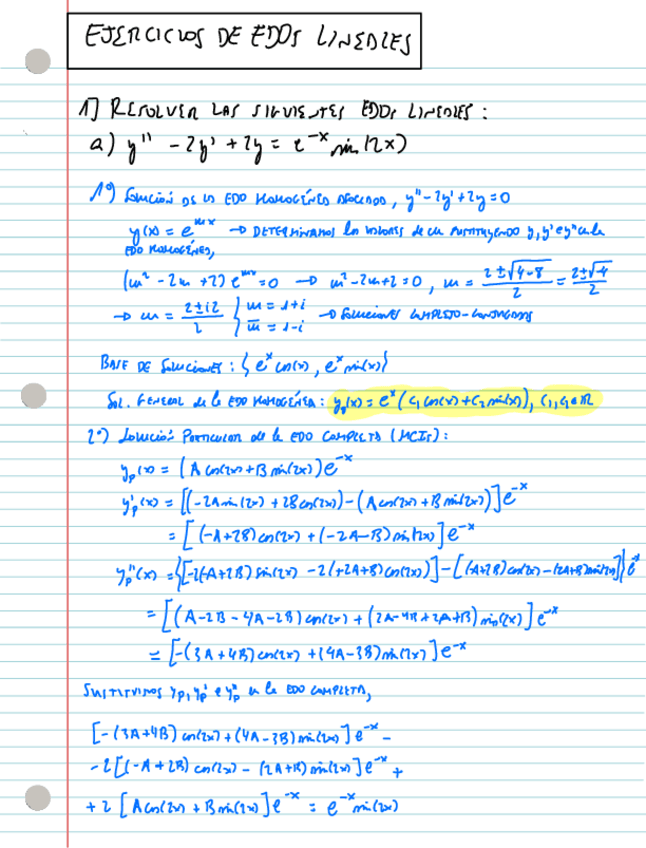 EJERCICIOS DE EDOS LINEALES
1] RESOLVER LAS SIGUIENTES EDOS LINEALES :
a) y'' - 2y' + 2y = e^{-x} sin(2x)
1º) SOLUCIÓN DE LA EDO HOMOGÉNEA ASOCIADA, y'' - 2y' + 2y = 0
y(x) = e^{mx} → DETERMINAMOS los valores de m sustituyendo y, y' e y'' en la
EDO HOMOGÉNEA,
(m² - 2m + 2) e^{mx} = 0 → m² - 2m + 2 = 0, m = (2 ± √(4-8))/2 = (2 ± √-4)/2
→ m = (2 ± i2)/2 { m = 1+i
m̅ = 1-i → Soluciones COMPLEJO-CONJUGADAS
BASE DE Soluciones : {e^x cos(x), e^x sin(x)}
Sol. GENERAL de la EDO HOMOGÉNEA : y_g(x) = e^x (C₁ cos(x) + C₂ sin(x)), C₁, C₂ ∈ ℝ
2º) Solución Particular de la EDO COMPLETA (MCIs) :
y_p(x) = (A cos(2x) + B sin(2x)) e^{-x}
y_p'(x) = [(-2A sin(2x) + 2B cos(2x)) - (A cos(2x) + B sin(2x))] e^{-x}
= [(-A+2B) cos(2x) + (-2A-B) sin(2x)] e^{-x}
y_p''(x) = {[-2(-A+2B) sin(2x) - 2(+2A+B) cos(2x)] - [(-A+2B) cos(2x) - (2A+B) sin(2x)]} e^{-x}
= [(A-2B-4A-2B) cos(2x) + (2A-4B+2A+B) sin(2x)] e^{-x}
= [-(3A+4B) cos(2x) + (4A-3B) sin(2x)] e^{-x}
SUSTITUIMOS y_p, y_p' e y_p'' en la EDO COMPLETA,
[-(3A+4B) cos(2x) + (4A-3B) sin(2x)] e^{-x} -
-2[(-A+2B) cos(2x) - (2A+B) sin(2x)] e^{-x} +
+2 [A cos(2x) + B sin(2x)] e^{-x} = e^{-x} sin(2x)